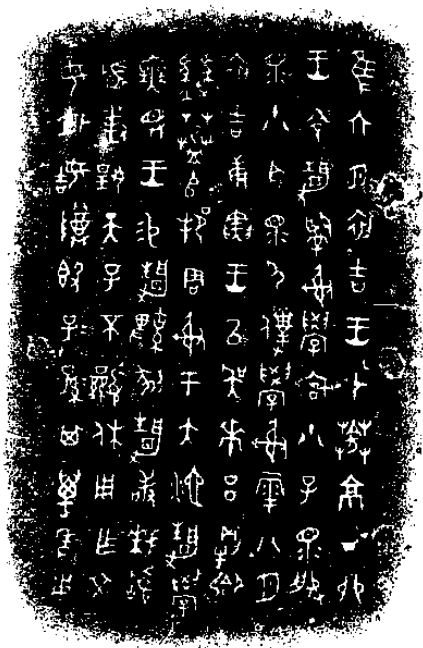 隹六月初吉王才𦱤京丁卯
王令靜𤔲射學宮小子眔服
眔小臣眔尸僕學射雩八月
初吉庚寅王以吳𠦪呂剛卿
𦵯𠂤邦周射于大池靜學
無王易靜鞞剢靜敢拜𩒨首
對揚天子不顯休用乍文母
外姞𣪘子子孫孫其萬年用